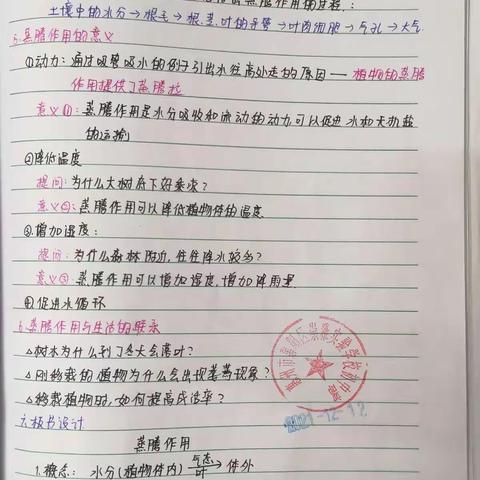 蒸腾作用的过程：
土壤中的水分→根毛→根.茎.叶的导管→叶肉细胞→气孔→大气.
5.蒸腾作用的意义
①动力：通过吸管吸水的例子引出水往高处走的原因——植物的蒸腾
作用提供了蒸腾拉
意义①：蒸腾作用是水分吸收和流动的动力,可以促进水和无机盐
的运输
②降低温度
提问：为什么大树底下好乘凉？
意义②：蒸腾作用可以降低植物体的温度
③增加湿度：
提问：为什么森林附近,往往降水较多？
意义③：蒸腾作用可以增加湿度,增加降雨量
④促进水循环
6.蒸腾作用与生活的联系
△树木为什么到了冬天会落叶？
△刚移栽的植物为什么会出现萎蔫现象？
△移栽植物时,如何提高成活率？
六.板书设计
蒸腾作用
1.概念： 水分(植物体内) 气态→叶 体外
2021-12-12